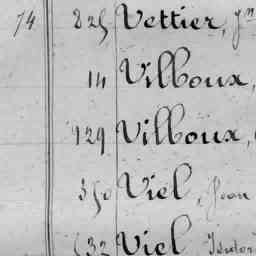 74 825 Vettier, Jn
14 Villoux,
129 Villoux,
350 Viel, Jean
632 Viel Isidor